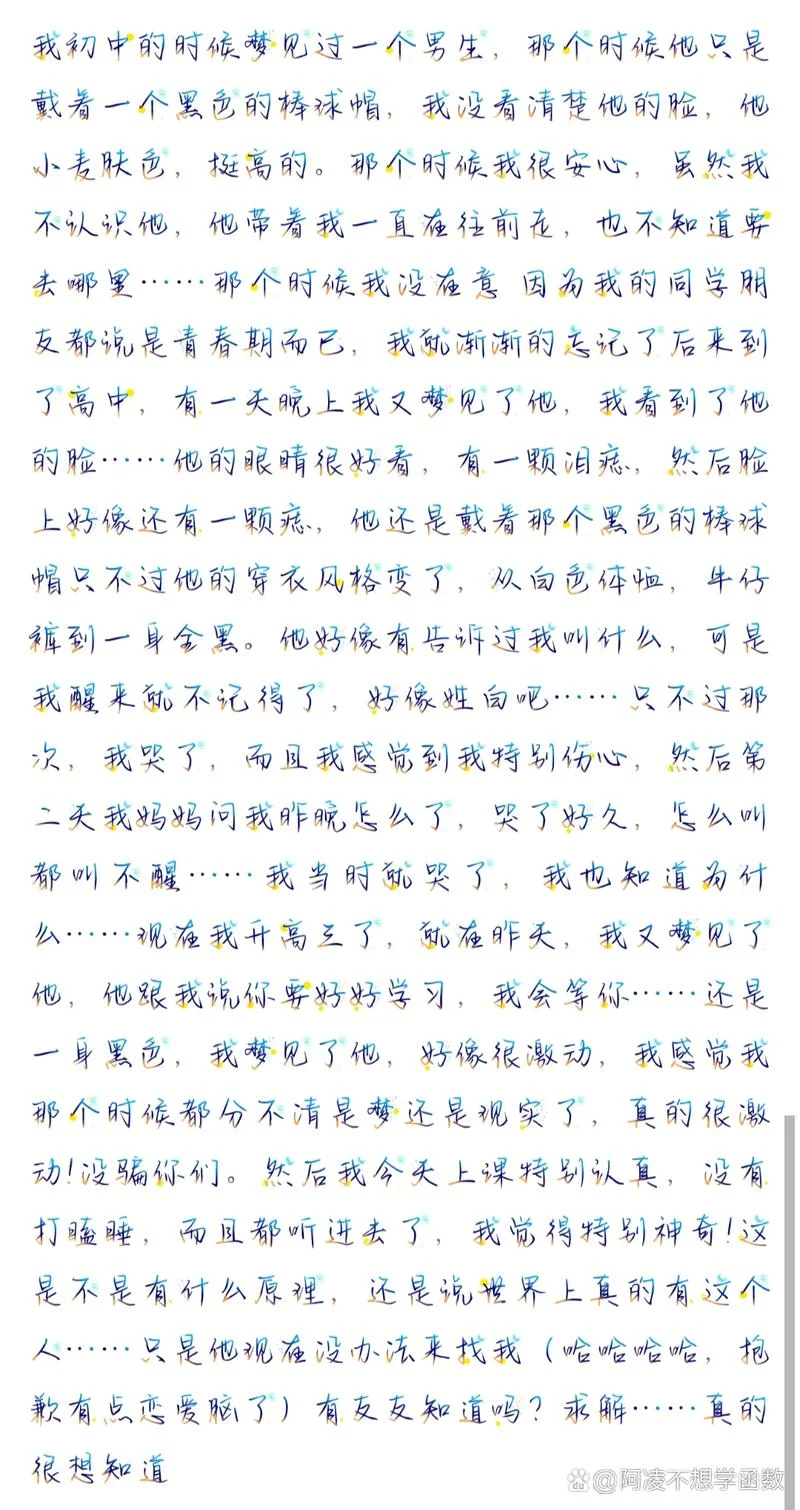 我初中的时候梦见过一个男生，那个时候他只是
戴着一个黑色的棒球帽，我没看清楚他的脸，他
小麦肤色，挺高的。那个时候我很安心，虽然我
不认识他，他带着我一直在往前走，也不知道要
去哪里……那个时候我没在意 因为我的同学朋
友都说是青春期而已，我就渐渐的忘记了后来到
了高中，有一天晚上我又梦见了他，我看到了他
的脸……他的眼睛很好看，有一颗泪痣，然后脸
上好像还有一颗痣，他还是戴着那个黑色的棒球
帽只不过他的穿衣风格变了，从白色体恤，牛仔
裤到一身全黑。他好像有告诉过我叫什么，可是
我醒来就不记得了，好像姓白吧……只不过那
次，我哭了，而且我感觉到我特别伤心，然后第
二天我妈妈问我昨晚怎么了，哭了好久，怎么叫
都叫不醒……我当时就哭了，我也知道为什
么……现在我升高三了，就在昨天，我又梦见了
他，他跟我说你要好好学习，我会等你……还是
一身黑色，我梦见了他，好像很激动，我感觉我
那个时候都分不清是梦还是现实了，真的很激
动！没骗你们。然后我今天上课特别认真，没有
打瞌睡，而且都听进去了，我觉得特别神奇！这
是不是有什么原理，还是说世界上真的有这个
人……只是他现在没办法来找我（哈哈哈哈，抱
歉有点恋爱脑了）有友友知道吗？求解……真的
很想知道
@阿凌不想学函数